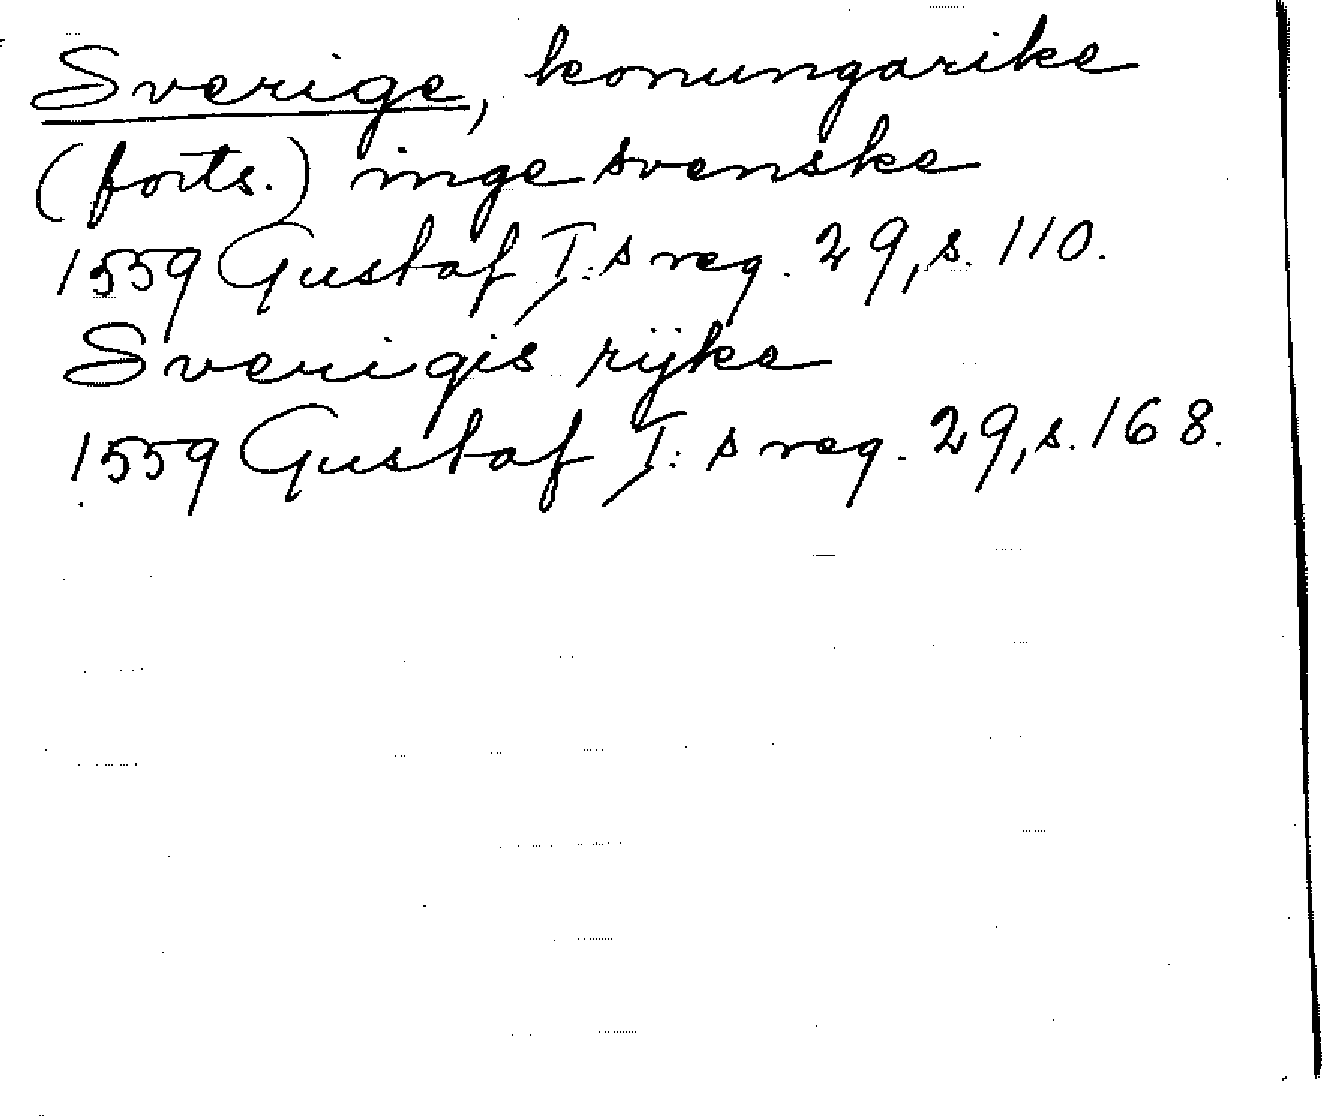 Sverige, konungarike
(forts.) inge svenske
1559 Gustaf I:s reg. 29, s. 110.
Sverigis rijke
1559 Gustaf I:s reg. 29, s. 168.